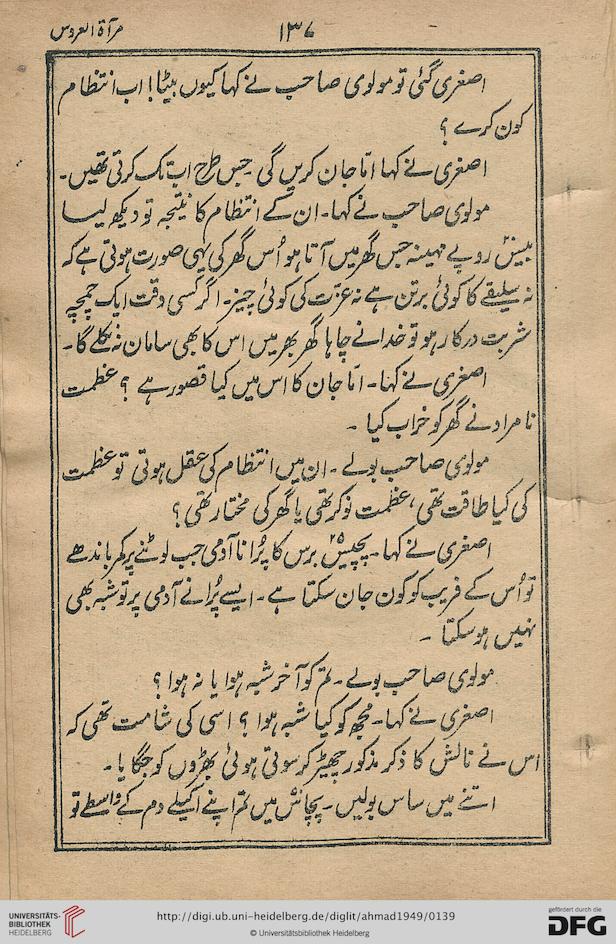 ۱۳۷
مرآۃ العروس
اصغری گئی تو مولوی صاحب نے کہا کیوں بیٹا! اب انتظام
کون کرے ؟
اصغری نے کہا امّاجان کریں گی۔ جس طرح اب تک کرتی تھیں۔
مولوی صاحب نے کہا۔ ان کے انتظام کا نتیجہ تو دیکھ لیا
بیس۲۰ روپے مہینہ جس گھر میں آتا ہو اُس گھر کی یہی صورت ہوتی ہے کہ
نہ سلیقے کا کوئی برتن ہے نہ عزت کی کوئی چیز۔ اگر کسی وقت ایک چمچہ
شربت درکار ہو تو خدا نے چاہا گھر بھر میں اس کا بھی سامان نہ نکلے گا۔
اصغری نے کہا۔ امّا جان کا اس میں کیا قصور ہے ؟ عظمت
نامراد نے گھر کو خراب کیا ۔
مولوی صاحب بولے ۔ ان میں انتظام کی عقل ہوتی تو عظمت
کی کیا طاقت تھی، عظمت نوکر تھی یا گھر کی مختار تھی ؟
اصغری نے کہا۔ پچیس۲۵ برس کا پُرانا آدمی جب لوٹنے پر کمر باندھے
تو اُس کے فریب کو کون جان سکتا ہے ۔ ایسے پُرانے آدمی پر تو شبہ بھی
نہیں ہو سکتا ۔
مولوی صاحب بولے ۔ تم کو آخر شبہ ہوا یا نہ ہوا ؟
اصغری نے کہا۔ مجھ کو کیا شبہ ہوا ؟ اسی کی شامت تھی کہ
اس نے نالش کا ذکر مذکور چھیڑ کر سوتی ہوئی بھڑوں کو جگایا۔
اتنے میں ساس بولیں ۔ پچاس۵۰ میں تم اپنے اکیلے دم کے واسطے تو
UNIVERSITÄTS-
BIBLIOTHEK
HEIDELBERG
http://digi.ub.uni-heidelberg.de/diglit/ahmad1949/0139
© Universitätsbibliothek Heidelberg
gefördert durch die
DFG